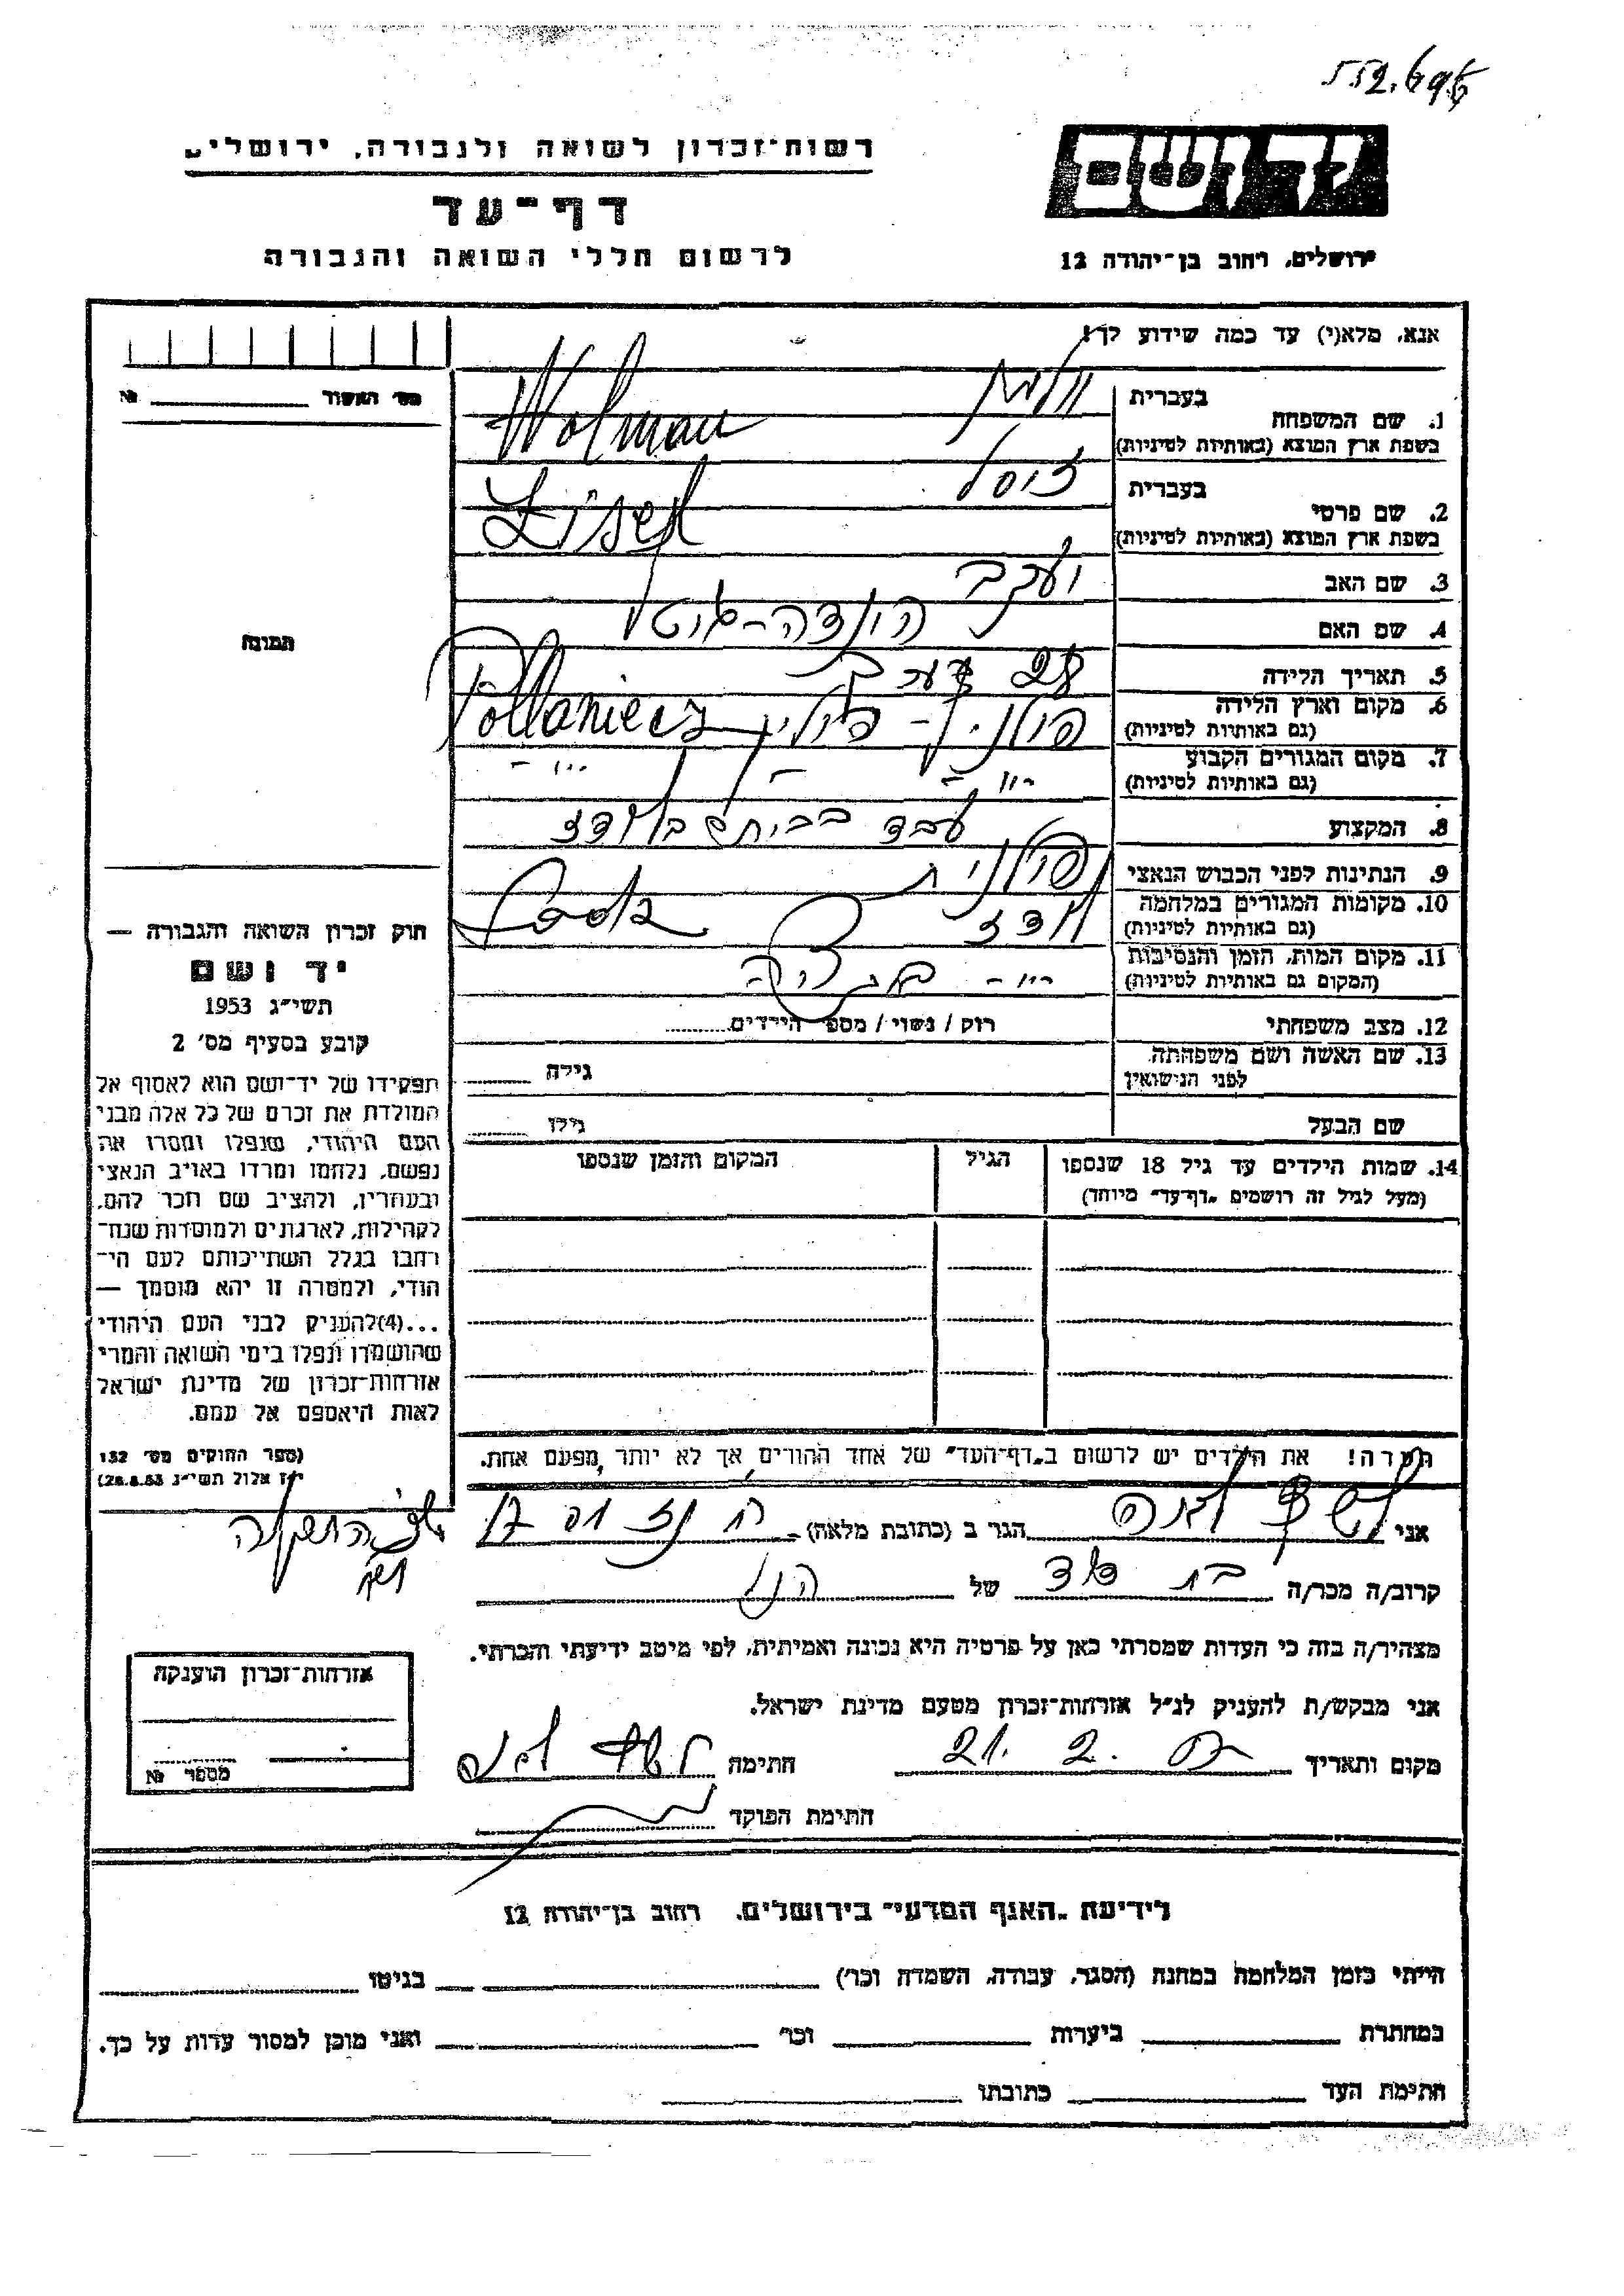 רשות־זכרון לשואה ולגבורה, ירושלים
דף־עד
לרשום חללי השואה והגבורה
יד ושם
ירושלים, רחוב בן־יהודה 12
אנא, מלא(י) עד כמה שידוע לך!
1. שם המשפחה בעברית וולמן
בשפת ארץ המוצא (באותיות לטיניות) Wolman
2. שם פרטי בעברית זיסל
בשפת ארץ המוצא (באותיות לטיניות) Zisel
3. שם האב יעקב
4. שם האם
5. תאריך הלידה 28
6. מקום וארץ הלידה
(גם באותיות לטיניות) פולין
7. מקום המגורים הקבוע
(גם באותיות לטיניות) -"-
8. המקצוע עבד בלודז
9. הנתינות לפני הכבוש הנאצי פולנית
10. מקומות המגורים במלחמה
(גם באותיות לטיניות) לודז Lodz
11. מקום המות, הזמן והנסיבות
(המקום גם באותיות לטיניות) -"-
12. מצב משפחתי רוק / נשוי / מספר הילדים
13. שם האשה ושם משפחתה
לפני הנישואין גילה
שם הבעל גילו
14. שמות הילדים עד גיל 18 שנספו הגיל המקום והזמן שנספו
(מעל לגיל זה רושמים "דף־עד" מיוחד)
הערה! את הילדים יש לרשום ב"דף־העד" של אחד ההורים, אך לא יותר מפעם אחת.
מס' האשור №
תמונה
חוק זכרון השואה והגבורה —
יד ושם
תשי"ג 1953
קובע בסעיף מס' 2
תפקידו של יד־ושם הוא לאסוף אל
המולדת את זכרם של כל אלה מבני
העם היהודי, שנפלו ומסרו את
נפשם, נלחמו ומרדו באויב הנאצי
ובעוזריו, ולהציב שם וזכר להם,
לקהילות, לארגונים ולמוסדות שנח־
רבו בגלל השתייכותם לעם הי־
הודי, ולמטרה זו יהא מוסמך —
...(4)להעניק לבני העם היהודי
שהושמדו ונפלו בימי השואה והמרי
אזרחות־זכרון של מדינת ישראל
לאות היאספם אל עמם.
(ספר החוקים מס' 132
י"ז אלול תשי"ג 28.8.53)
אני הגר ב (כתובת מלאה) 17
קרוב/ה מכר/ה בת דוד של הנ"ל
מצהיר/ה בזה כי העדות שמסרתי כאן על פרטיה היא נכונה ואמיתית, לפי מיטב ידיעתי והכרתי.
אני מבקש/ת להעניק לנ"ל אזרחות־זכרון מטעם מדינת ישראל.
מקום ותאריך 21. 2. חתימה
חתימת הפוקד
אזרחות־זכרון הוענקה
מספר №
לידיעת "האגף המדעי" בירושלים, רחוב בן־יהודה 12
הייתי בזמן המלחמה במחנה (הסגר, עבודה, השמדה וכו') בגיטו
במחתרת ביערות וכו' ואני מוכן למסור עדות על כך.
חתימת העד כתובתו